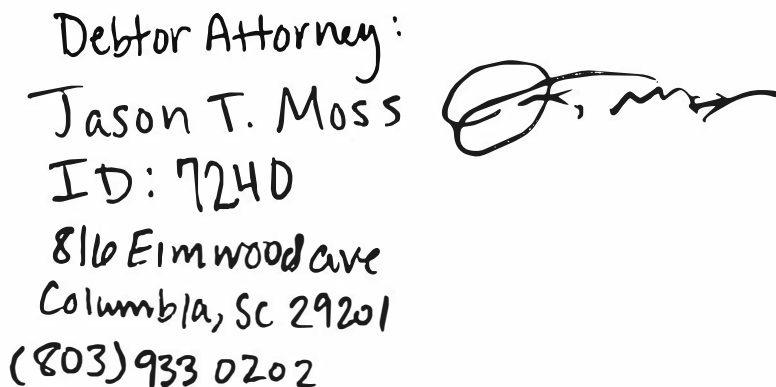 Debtor Attorney:
Jason T. Moss
ID: 7240
816 Elmwood ave
Columbia, SC 29201
(803) 933 0202